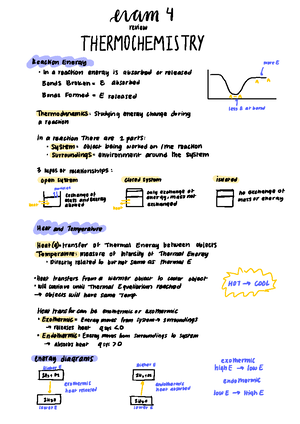 exam 4
review
THERMOCHEMISTRY
Reaction Energy
• In a reaction energy is absorbed or released
Bonds Broken = E absorbed
Bonds Formed = E released
more E
less E at bond
Thermodynamics: Studying energy change during
a reaction
In a reaction there are 2 parts:
• System: Object being worked on / the reaction
• Surroundings: Environment around the system
3 types of relationships:
open system
exchange of
mass and energy
allowed
closed system
only exchange of
energy, mass not
exchanged
isolated
no exchange of
mass or energy
Heat and Temperature
Heat(q): transfer of Thermal Energy between objects
Temperature: measure of intensity of Thermal Energy
• Directly related to but not same as Thermal E
• Heat transfers from a warmer object to cooler object
• Will continue until Thermal Equilibrium reached
→ objects will have same Temp
HOT → COOL
Heat transfer can be endothermic or exothermic
• Exothermic: Energy moves from system → surroundings
→ releases heat q sys < 0
• Endothermic: Energy moves from surroundings to system
→ Absorbs heat q sys > 0
Energy diagrams
higher E
exothermic
heat released
lower E
higher E
endothermic
heat absorbed
lower E
exothermic
high E → low E
endothermic
low E → High E